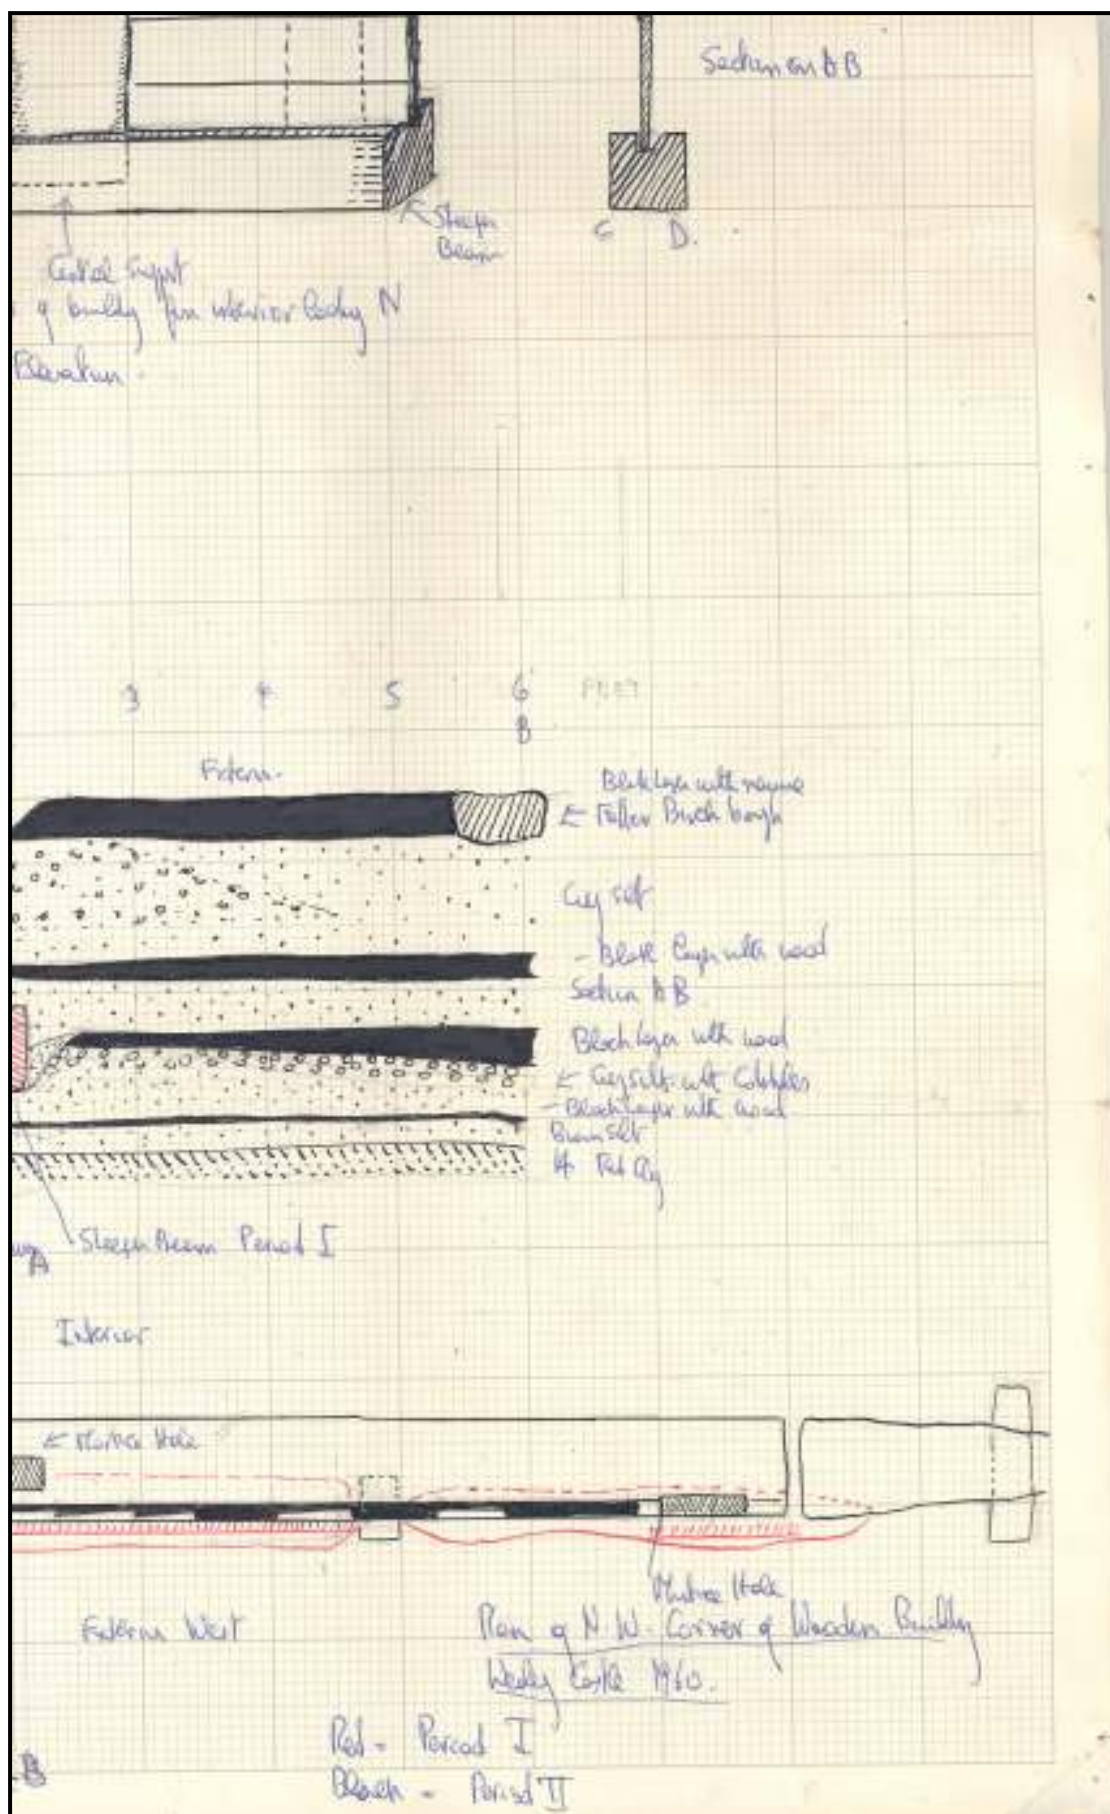 Section on AB
Sleeper
Beam
C D.
Central Support
of building from interior looking N
Elevation -
3 4 5 6 FEET
B
Extern-
Black layer with
← Birch bough
Grey silt
- Black layer with wood
Section AB
Black layer with wood
← Grey silt with Cobbles
- Black layer with wood
Brown Silt
Clay
A
Sleeper Beam Period I
Interior
← Mortice Hole
Mortice Hole
Exterior West
Plan of N.W. Corner of Wooden Building
Castle 1960.
Red - Period I
Black - Period II
B